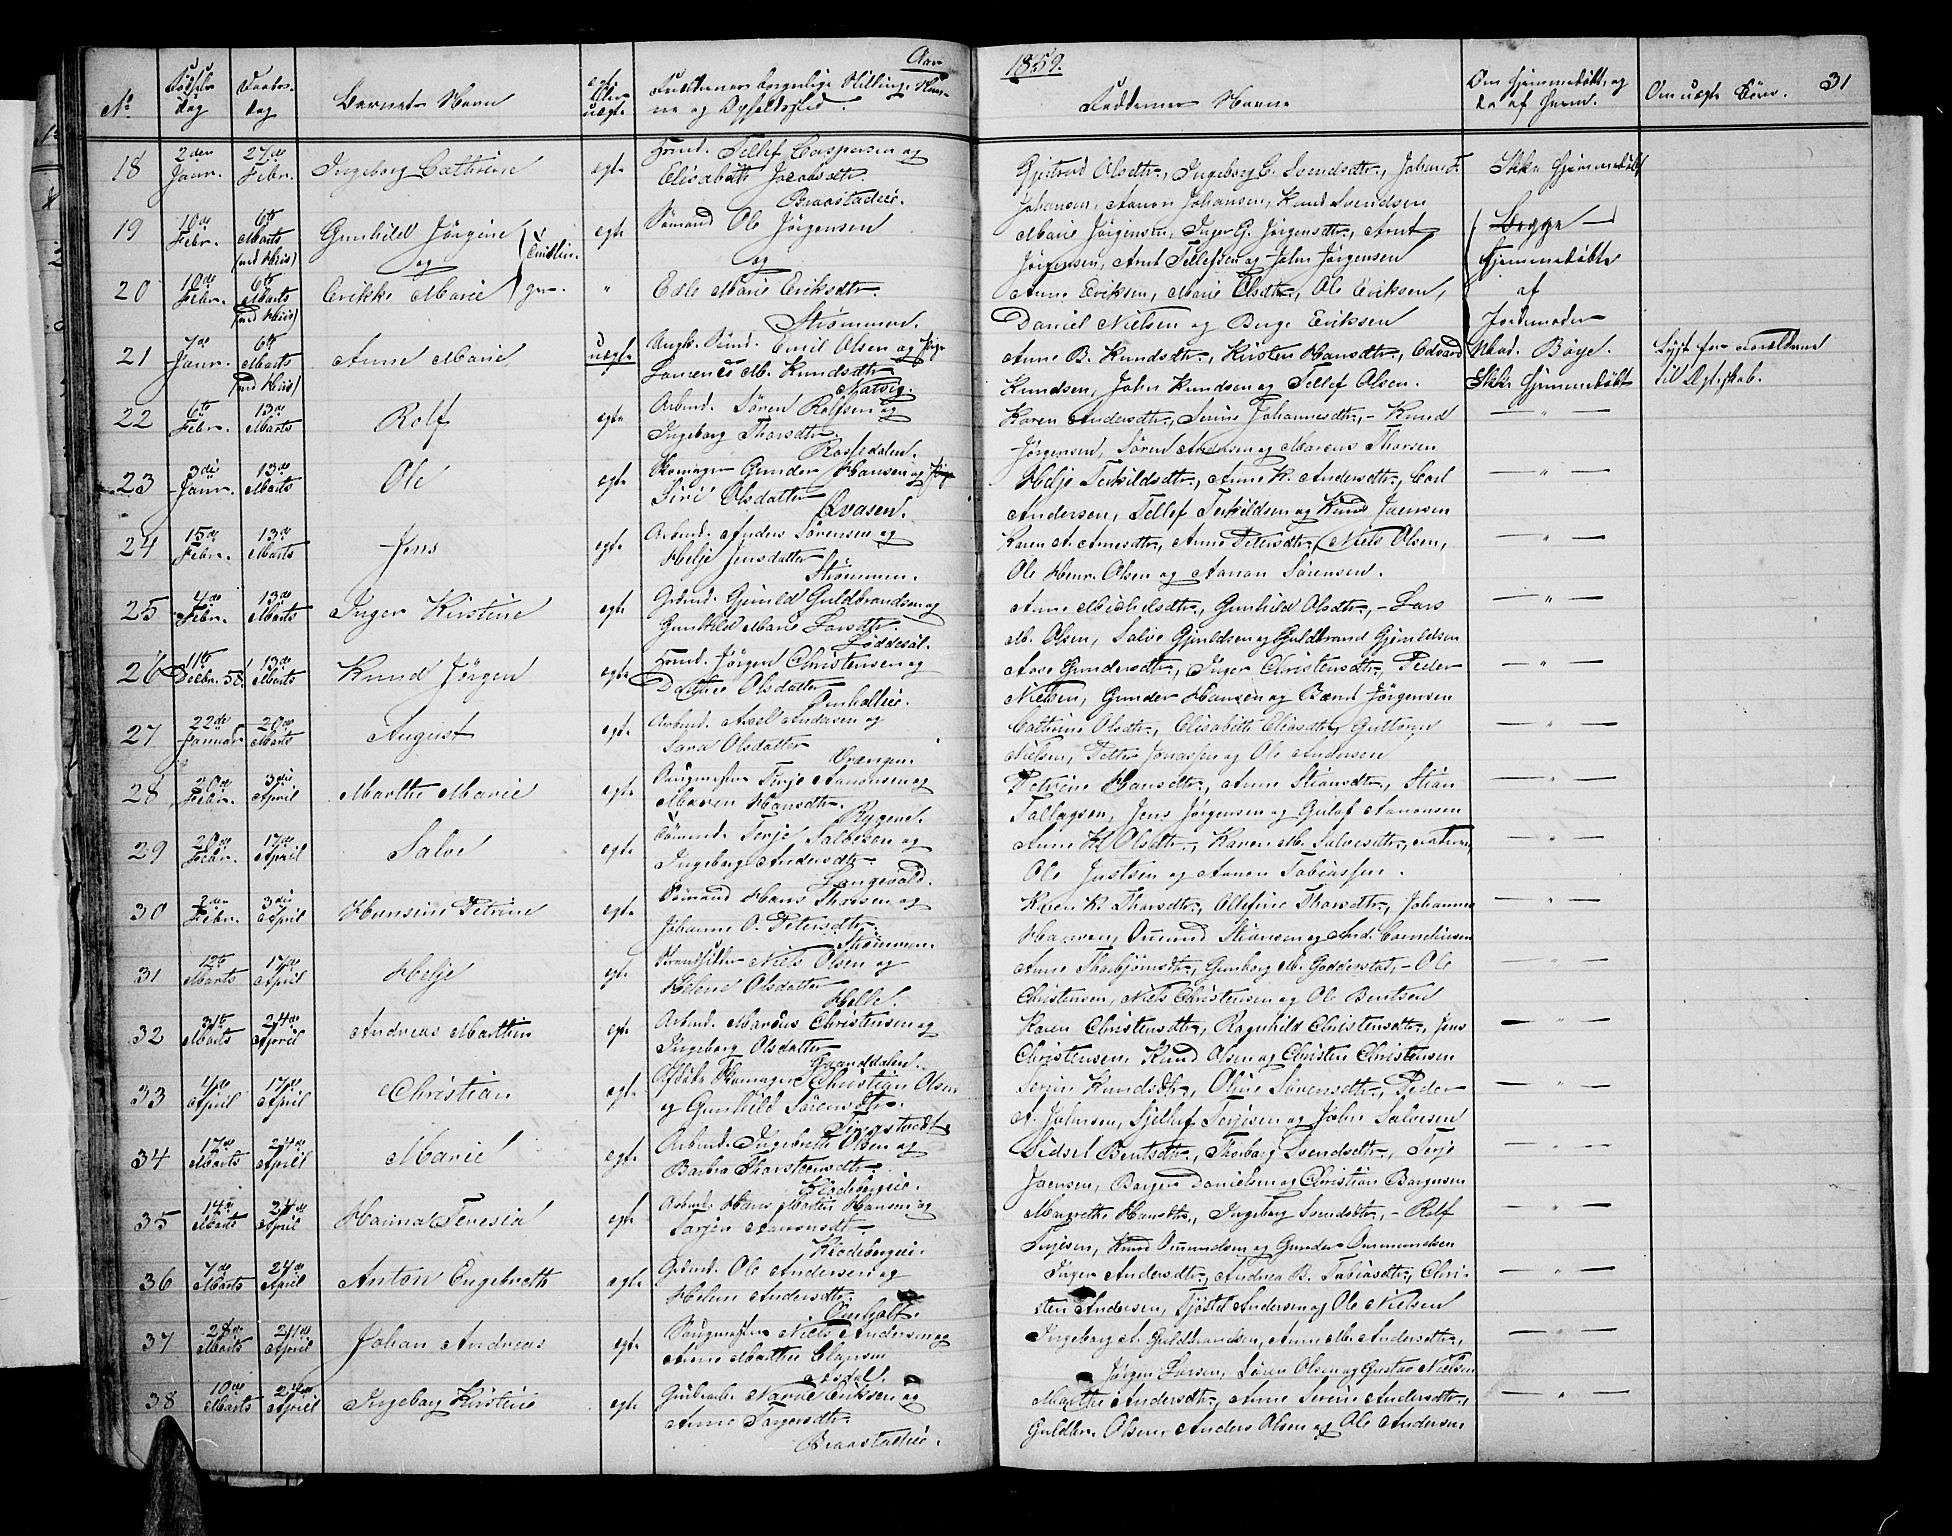 Aar 1859.
31
No Fødsels Dag Daabs Dag Barnets Navn egte eller uægte Forældrenes borgerlige Stilling, Navne og Opholdssted.
Faddernes Navne Om hjemmedøbt, og da af hvem. Om uægte Børn.
18 2den Janr. 27de Febr. Ingeborg Cathrine egte Tellef Caspersen og
Elisabeth Jacobsdtr.
Braastadeie.
Gjertrud Olsdtr., Ingeborg C. Svendsdtr., Johan F.
Johansen, Aanon Johansen, Knud Svendsen
Ikke hjemmedøbt
19 10de Febr. 6te Marts (ved Hiis) Gunhild Jørgine egte Sømand Ole Jørgensen
og Tvillin-
Marie Jørgensen, Inger G. Jørgensdtr., Arnt
Jørgensen, Arnt Tellefsen og John Jørgensen
Begge
hjemmedøbte
20 10de Febr. 6te Marts (ved Hiis) Erikke Marie ger. " Edle Marie Eriksdtr.
Strømmen.
Anne Eriksen, Marie Olsdtr., Ole Eriksen,
Daniel Nielsen og Berge Eriksen
af
Jordemoder
Mad. Bøye.
21 7de Janr. 6te Marts (ved Hiis) Anne Marie uægte Ungk. Sømd. Emil Olsen og Pige
Laurence M. Knudsdtr.
Natvig.
Anne B. Knudsdtr., Kirsten Hansdtr., Edvard
Knudsen, John Knudsen og Tellef Olsen.
Ikke hjemmedøbt
Lyst for Forældrene
til Ægteskab.
22 6te Febr. 13de Marts Rolf egte Arbmd. Søren Rolfsen og
Ingeborg Thorsdtr.
Rossedalen.
Karen Andersdtr., Serine Johannesdtr., - Knud
Jørgensen, Søren Andersen og Marcus Thorsen
— " —
23 3die Janr. 13de Marts Ole egte Skomager Gunder Hansen og
Siri Olsdatter
Qvasen.
Helje Terkildsdtr., Anne K. Andersdtr., Carl
Andersen, Tellef Terkildsen og Knud Joensen
— " —
24 15de Febr. 13de Marts Jens egte Arbmd. Anders Sørensen og
Helje Jensdatter
Strømmen.
Karen A. Arnesdtr., Anne Petersdtr., Niels Olsen,
Ole Henr. Olsen og Aanon Sørensen.
— " —
25 4de Febr. 13de Marts Inger Kirstine egte Grdmd. Gjeruld Guldbrandsen og
Gunhild Marie Larsdtr.
Løddesøl.
Anne Michelsdtr., Gunhild Olsdtr., - Lars
M. Olsen, Salve Gjeruldsen og Guldbrand Gjeruldsen
— " —
26 11te Decbr. 58. 13de Marts Knud Jørgen egte Jørgen Christensen og
Dorthea Olsdatter
Aase Gundersdtr., Inger Christensdtr., Peder
Nielsen, Gunder Hansen og Bernt Jørgensen
— " —
27 22de Januar 20de Marts August egte Arbmd. Axel Andersen og
Sara Olsdatter
Vrængen
Cathrine Olsdtr., Elisabeth Eliasdtr., Guttorm
Nielsen, Petter Jonassen og Ole Andersen
— " —
28 20de Febr. 3die April Marthe Marie egte Saugmester Terje Aanonsen og
Maren Hansdtr.
Rygene.
Petrine Hansdtr., Anne Stiansdtr., Stian
Tallagsen, Jens Jørgensen og Gulaf Aanonsen
— " —
29 20de Febr. 17de April Salve egte Sømand Terje Salvesen og
Ingeborg Andersdtr.
Langevold.
Anne H. Olsdtr., Karen M. Salvesdtr.,
Ole Justsen og Aanon Tobiassen.
— " —
30 2den Febr. 3die April Hansine Petrine egte Sømand Hans Thorsen og
Johanne O. Petersdtr.
Strømmen.
Karen K. Thorsdtr., Ellefine Thorsdtr., Johannes
Hansen, Omund Stiansen og And. Cornelius­sen
— " —
31 12te Marts 17de April Helje egte Strandsidder Niels Olsen og
Helene Olsdatter
Helle.
Anne Thorbjørnsdtr., Gunborg M. Godderstad, - Ole
Christensen, Niels Christensen og Ole Bentsen
— " —
32 31te Marts 24de April Andreas Mathin egte Arbmd. Marcus Christensen og
Ingeborg Olsdatter
Karen Christensdtr., Ragnhild Christensdtr., Jens
Christensen Knud Olsen og Christen Christensen
— " —
33 4de April 17de April Christian egte Afdøde Skomager Christian Olsen
og Gunhild Sørensdtr.
Tingstvedt.
Serine Knudsdtr., Oline Sørensdtr., Peder
A. Johnsen, Sjelluf Terjesen og John Salvesen
— " —
34 17de Marts 24de April Marie egte Arbmd. Ingebreth Olsen og
Barbra Thorsteensdtr.
Klodebergeie.
Sidsel Bentsdtr., Thorborg Svendsdtr., Terje
Joensen, Borger Danielsen og Christian Borgersen
— " —
35 14de Marts 24de April Hanna Teresia egte Arbmd. Hans Martin Hansen og
Torjer Aanonsdtr.
Klodebergeie.
Margrethe Hansdtr., Ingeborg Svendsdtr., - Rolf
Terjesen, Knud Omundsen og Gunder Ommundsen
— " —
36 7de Marts 24de April Anton Engebreth egte Grdmd. Ole Andersen og
Helene Andersdtr.
Inger Andersdtr., Andrea B. Tobiasdtr., Chri-
sten Andersen, Tjøstel Andersen og Ole Nielsen
— " —
37 28de Marts 24de April Johan Andreas egte Saugmester Niels Andersen og
Anne Marthe Clausen
Asdal.
Ingeborg A. Guldbrandsen, Anne M. Andersdtr.,
Jørgen Larsen, Søren Olsen og Gustav Nielsen
— " —
38 10de Marts 24de April Ingeborg Kirstine egte Narve Eriksen og
Anne Torgersdtr.
Braastadeie.
Marthe Andersdtr., Anne Serine Andersdtr.,
Guldbr. Olsen, Anders Olsen og Ole Andersen
— " —